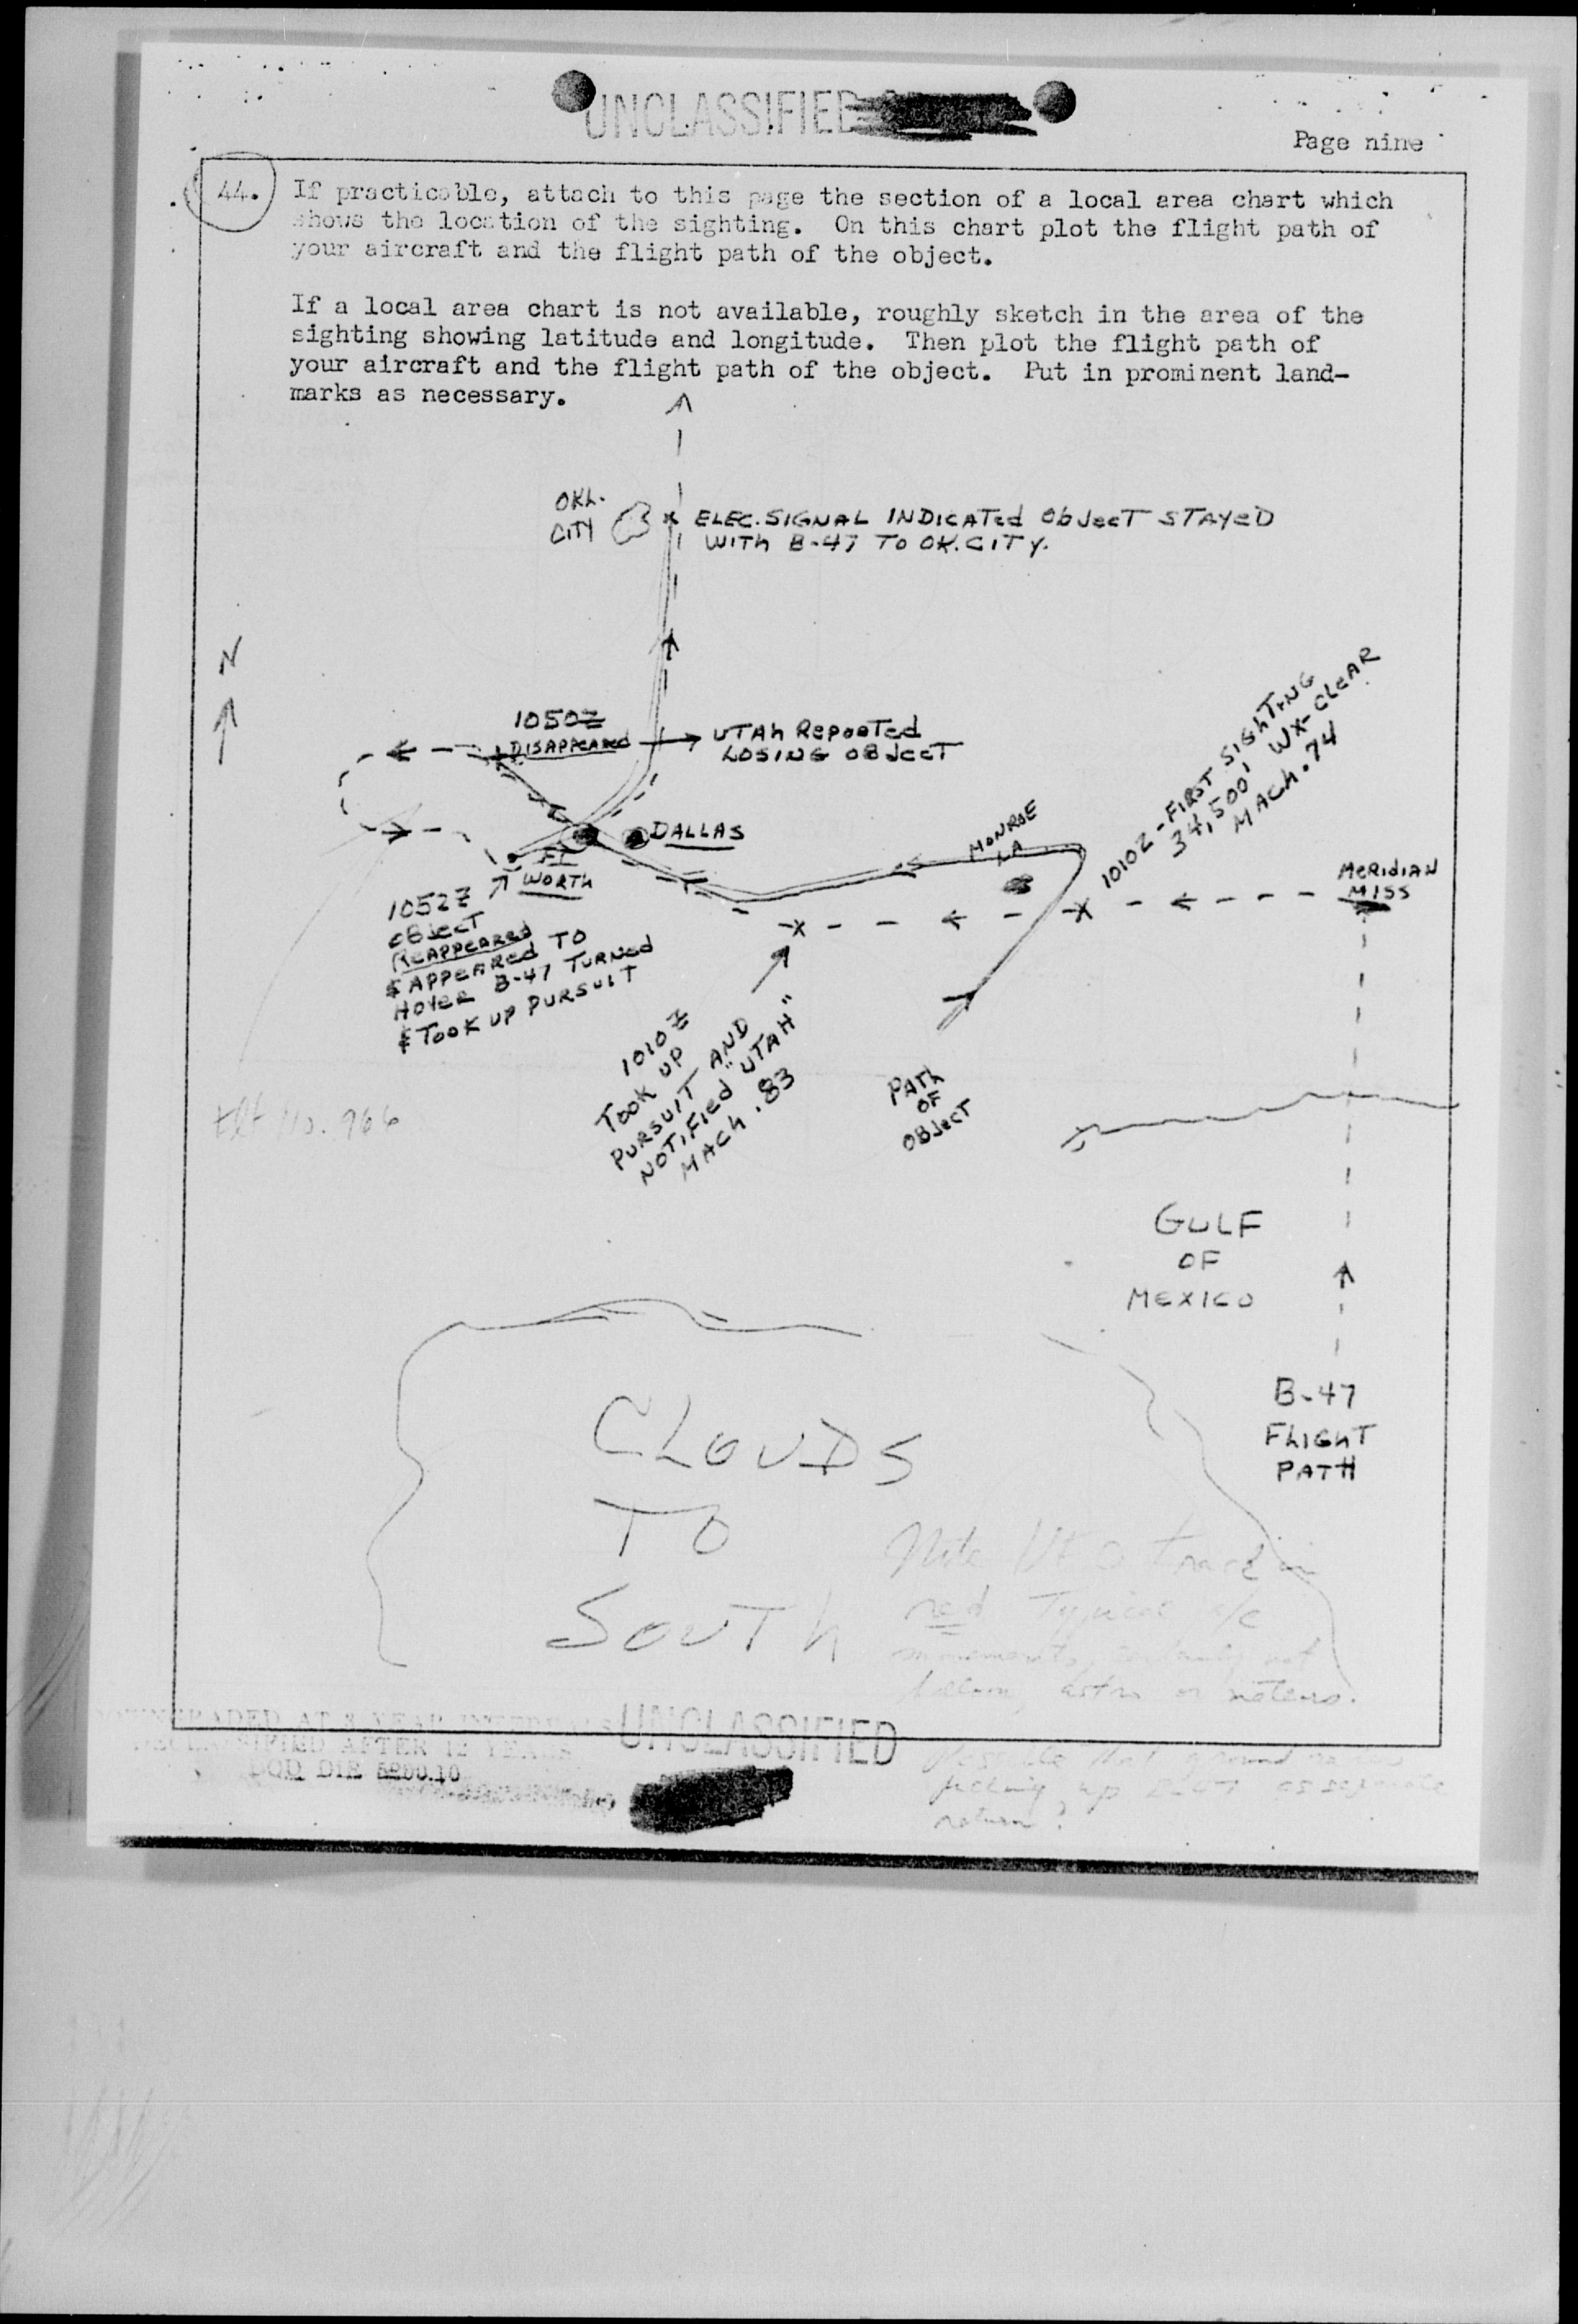 UNCLASSIFIED
Page nine
44. If practicable, attach to this page the section of a local area chart which
shows the location of the sighting. On this chart plot the flight path of
your aircraft and the flight path of the object.
If a local area chart is not available, roughly sketch in the area of the
sighting showing latitude and longitude. Then plot the flight path of
your aircraft and the flight path of the object. Put in prominent land-
marks as necessary.
OKL.
CITY
ELEC. SIGNAL INDICATed ObJecT STAYeD
WITh B-47 TO OK. CITY.
N
1050Z
DISAPPEARED
UTAh RepoRTed
LOSING OBJecT
DALLAS
FT
WORTh
MONROE
LA
1010Z - FIRST SIGhTING
34,500' WX-CLEAR
MACH .74
MeRIdIAN
MISS
1052Z
OBJecT
ReAPPeARed
& APPEARed TO
HOVER B-47 TURNed
& TOOK UP PURSUIT
1010Z
TOOK UP
PURSUIT AND
NOTIFIed "UTAH"
MACh .83
PATh
OF
OBJecT
GULF
OF
MEXICO
B-47
FLIGhT
PATH
CLOUDS
TO
SOUTh
Note track in
red Typical a/c
not
astro or meteors.
DOWNGRADED AT 3 YEAR INTERVALS
DECLASSIFIED AFTER 12 YEARS
DOD DIR 5200.10
UNCLASSIFIED
that ground
picking up as separate
return?